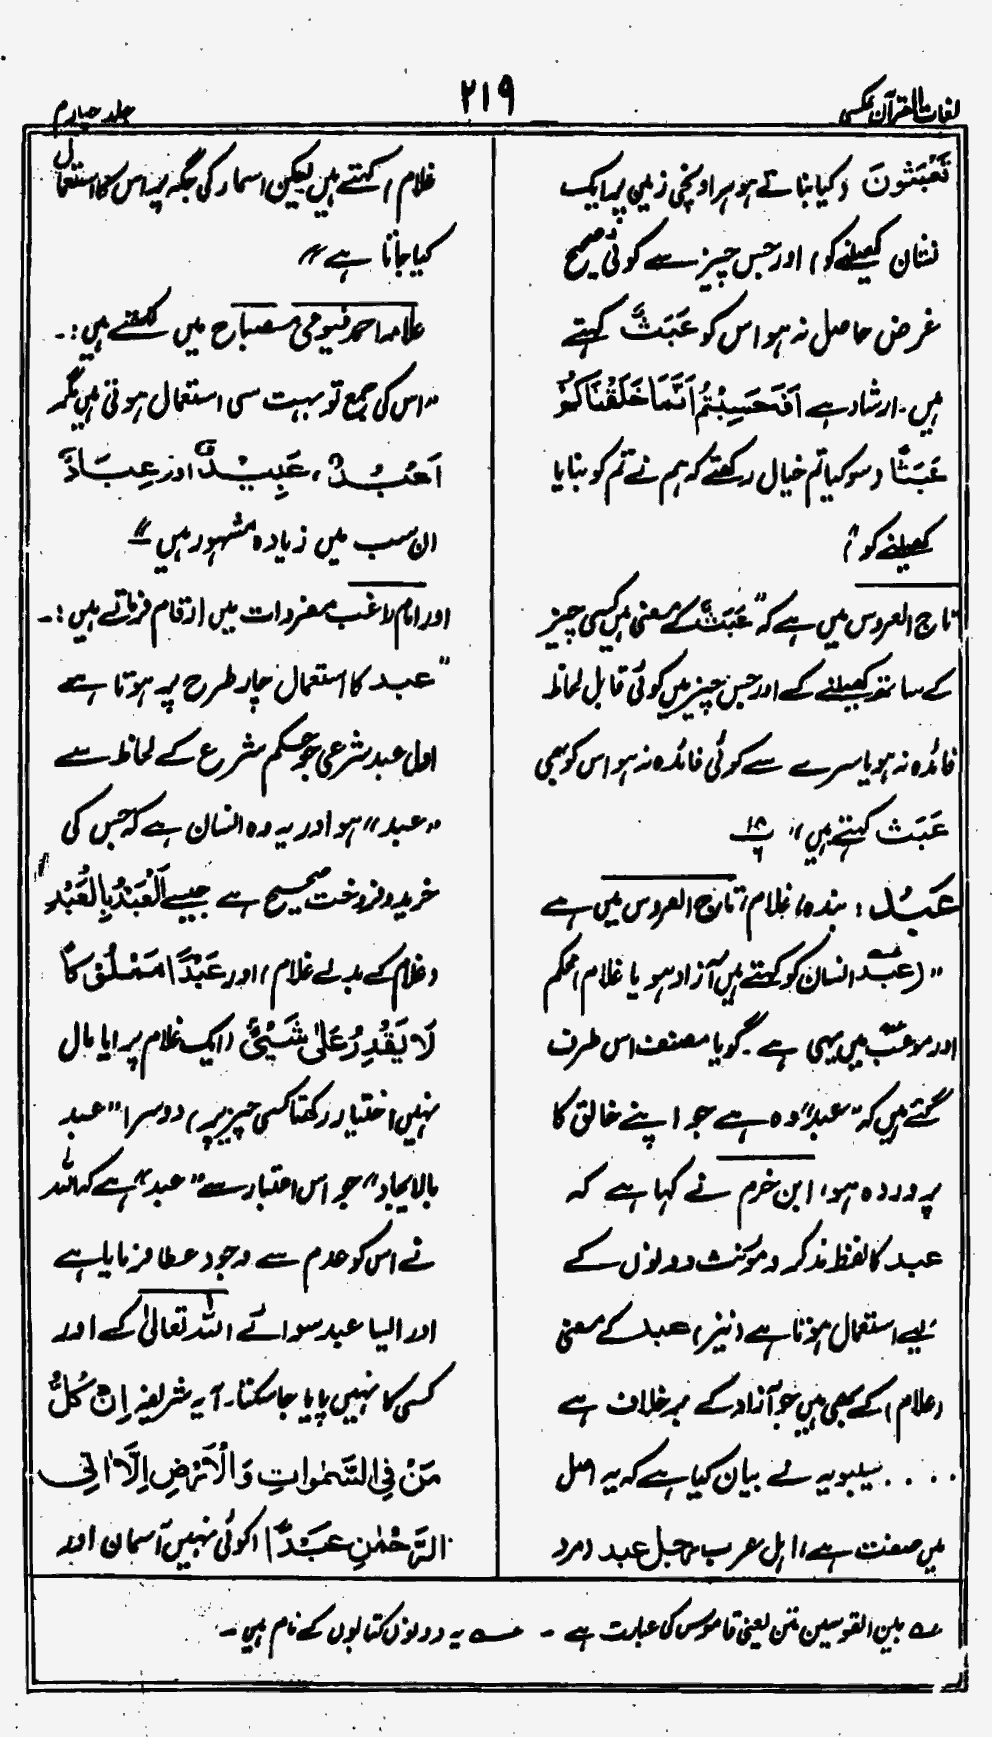 لغات القرآن عکسی
۲۱۹
جلد چہارم
تَعْبَثُونَ (کیا بناتے ہو ہر اونچی زمین پر ایک
نشان کھیلنے کو) اور جس چیز سے کوئی صحیح
غرض حاصل نہ ہو اس کو عَبَثٌ کہتے
ہیں۔ ارشاد ہے اَفَحَسِبْتُمْ اَنَّمَا خَلَقْنَاكُمْ
عَبَثًا (سو کیا تم خیال رکھتے کہ ہم نے تم کو بنایا
کھیلنے کو)
تاج العروس میں ہے کہ "عَبَثٌ کے معنی میں کسی چیز
کے ساتھ کھیلنے کے اور جس چیز میں کوئی قابل لحاظ
فائدہ نہ ہو یا سرے سے کوئی فائدہ نہ ہو اس کو بھی
عَبَث کہتے ہیں" ۱۸/۶
عَبْدٌ: بندہ، غلام، تاج العروس میں ہے
"(عبد) انسان کو کہتے ہیں آزاد ہو یا غلام، محکم
اور لاعب میں یہی ہے۔ گویا مصنف اس طرف
گئے ہیں کہ "عبد" وہ ہے جو اپنے خالق کا
پروردہ ہو، ابن خرم نے کہا ہے کہ
عبد کا لفظ مذکر و مؤنث دونوں کے
لیے استعمال ہوتا ہے (نیز) عبد کے معنی
(غلام) کے بھی ہیں جو آزاد کے برخلاف ہے
۔۔۔۔ سیبویہ نے بیان کیا ہے کہ یہ اصل
میں صفت ہے، اہل عرب رجل عبد (مرد
غلام) کہتے ہیں لیکن اسماء کی جگہ پر اس کا استعمال
کیا جاتا ہے"
علامہ احمد فیومی مصباح میں لکھتے ہیں:۔
"اس کی جمع تو بہت سی استعمال ہوتی ہیں مگر
اَعْبُدٌ، عَبِيدٌ اور عِبَادٌ
ان سب میں زیادہ مشہور ہیں"
اور امام راغب مفردات میں ارقام فرماتے ہیں:۔
"عبد کا استعمال چار طرح پر ہوتا ہے
اول عبد شرعی جو حکم شرع کے لحاظ سے
"عبد" ہو اور یہ وہ انسان ہے کہ جس کی
خرید و فروخت صحیح ہے جیسے اَلْعَبْدُ بِالْعَبْدِ
(غلام کے بدلے غلام) اور عَبْدًا مَمْلُوْكًا
لَا يَقْدِرُ عَلٰى شَيْءٍ (ایک غلام پرایا مال
نہیں اختیار رکھتا کسی چیز پر) دوسرا "عبد
بالایجاد" جو اس اعتبار سے "عبد" ہے کہ اللہ
نے اس کو عدم سے وجود عطا فرمایا ہے
اور ایسا عبد سوائے اللہ تعالیٰ کے اور
کسی کا نہیں پایا جا سکتا۔ آیہ شریفہ اِنْ كُلُّ
مَنْ فِي السَّمٰوَاتِ وَالْاَرْضِ اِلَّا اٰتِي
الرَّحْمٰنِ عَبْدًا (کوئی نہیں آسمان اور
؎ بین القوسین متن یعنی قاموس کی عبارت ہے۔ ؎ یہ دونوں کتابوں کے نام ہیں۔